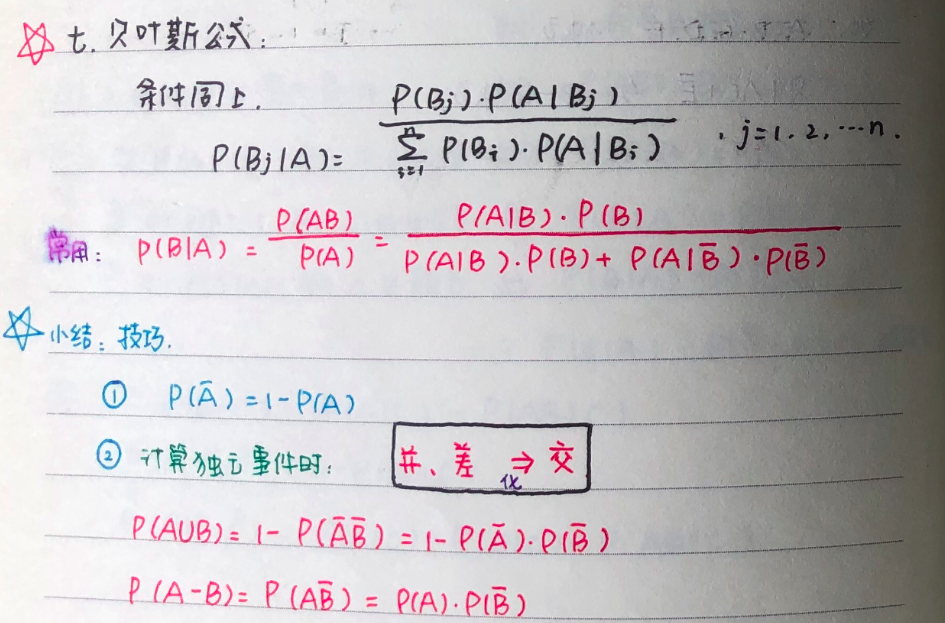 ☆ 七. 贝叶斯公式:
条件同上.
P(Bj|A)= P(Bj)·P(A|Bj) / ∑_{i=1}^{n} P(Bi)·P(A|Bi) , j=1. 2. …n.
常用: P(B|A) = P(AB)/P(A) = P(A|B)·P(B) / P(A|B)·P(B)+ P(A|B̄)·P(B̄)
☆ 小结: 技巧.
① P(Ā)=1-P(A)
② 计算独立事件时: 并、差 ⇒ 化 交
P(A∪B)=1- P(ĀB̄) = 1- P(Ā)·P(B̄)
P(A-B)= P(AB̄) = P(A)·P(B̄)